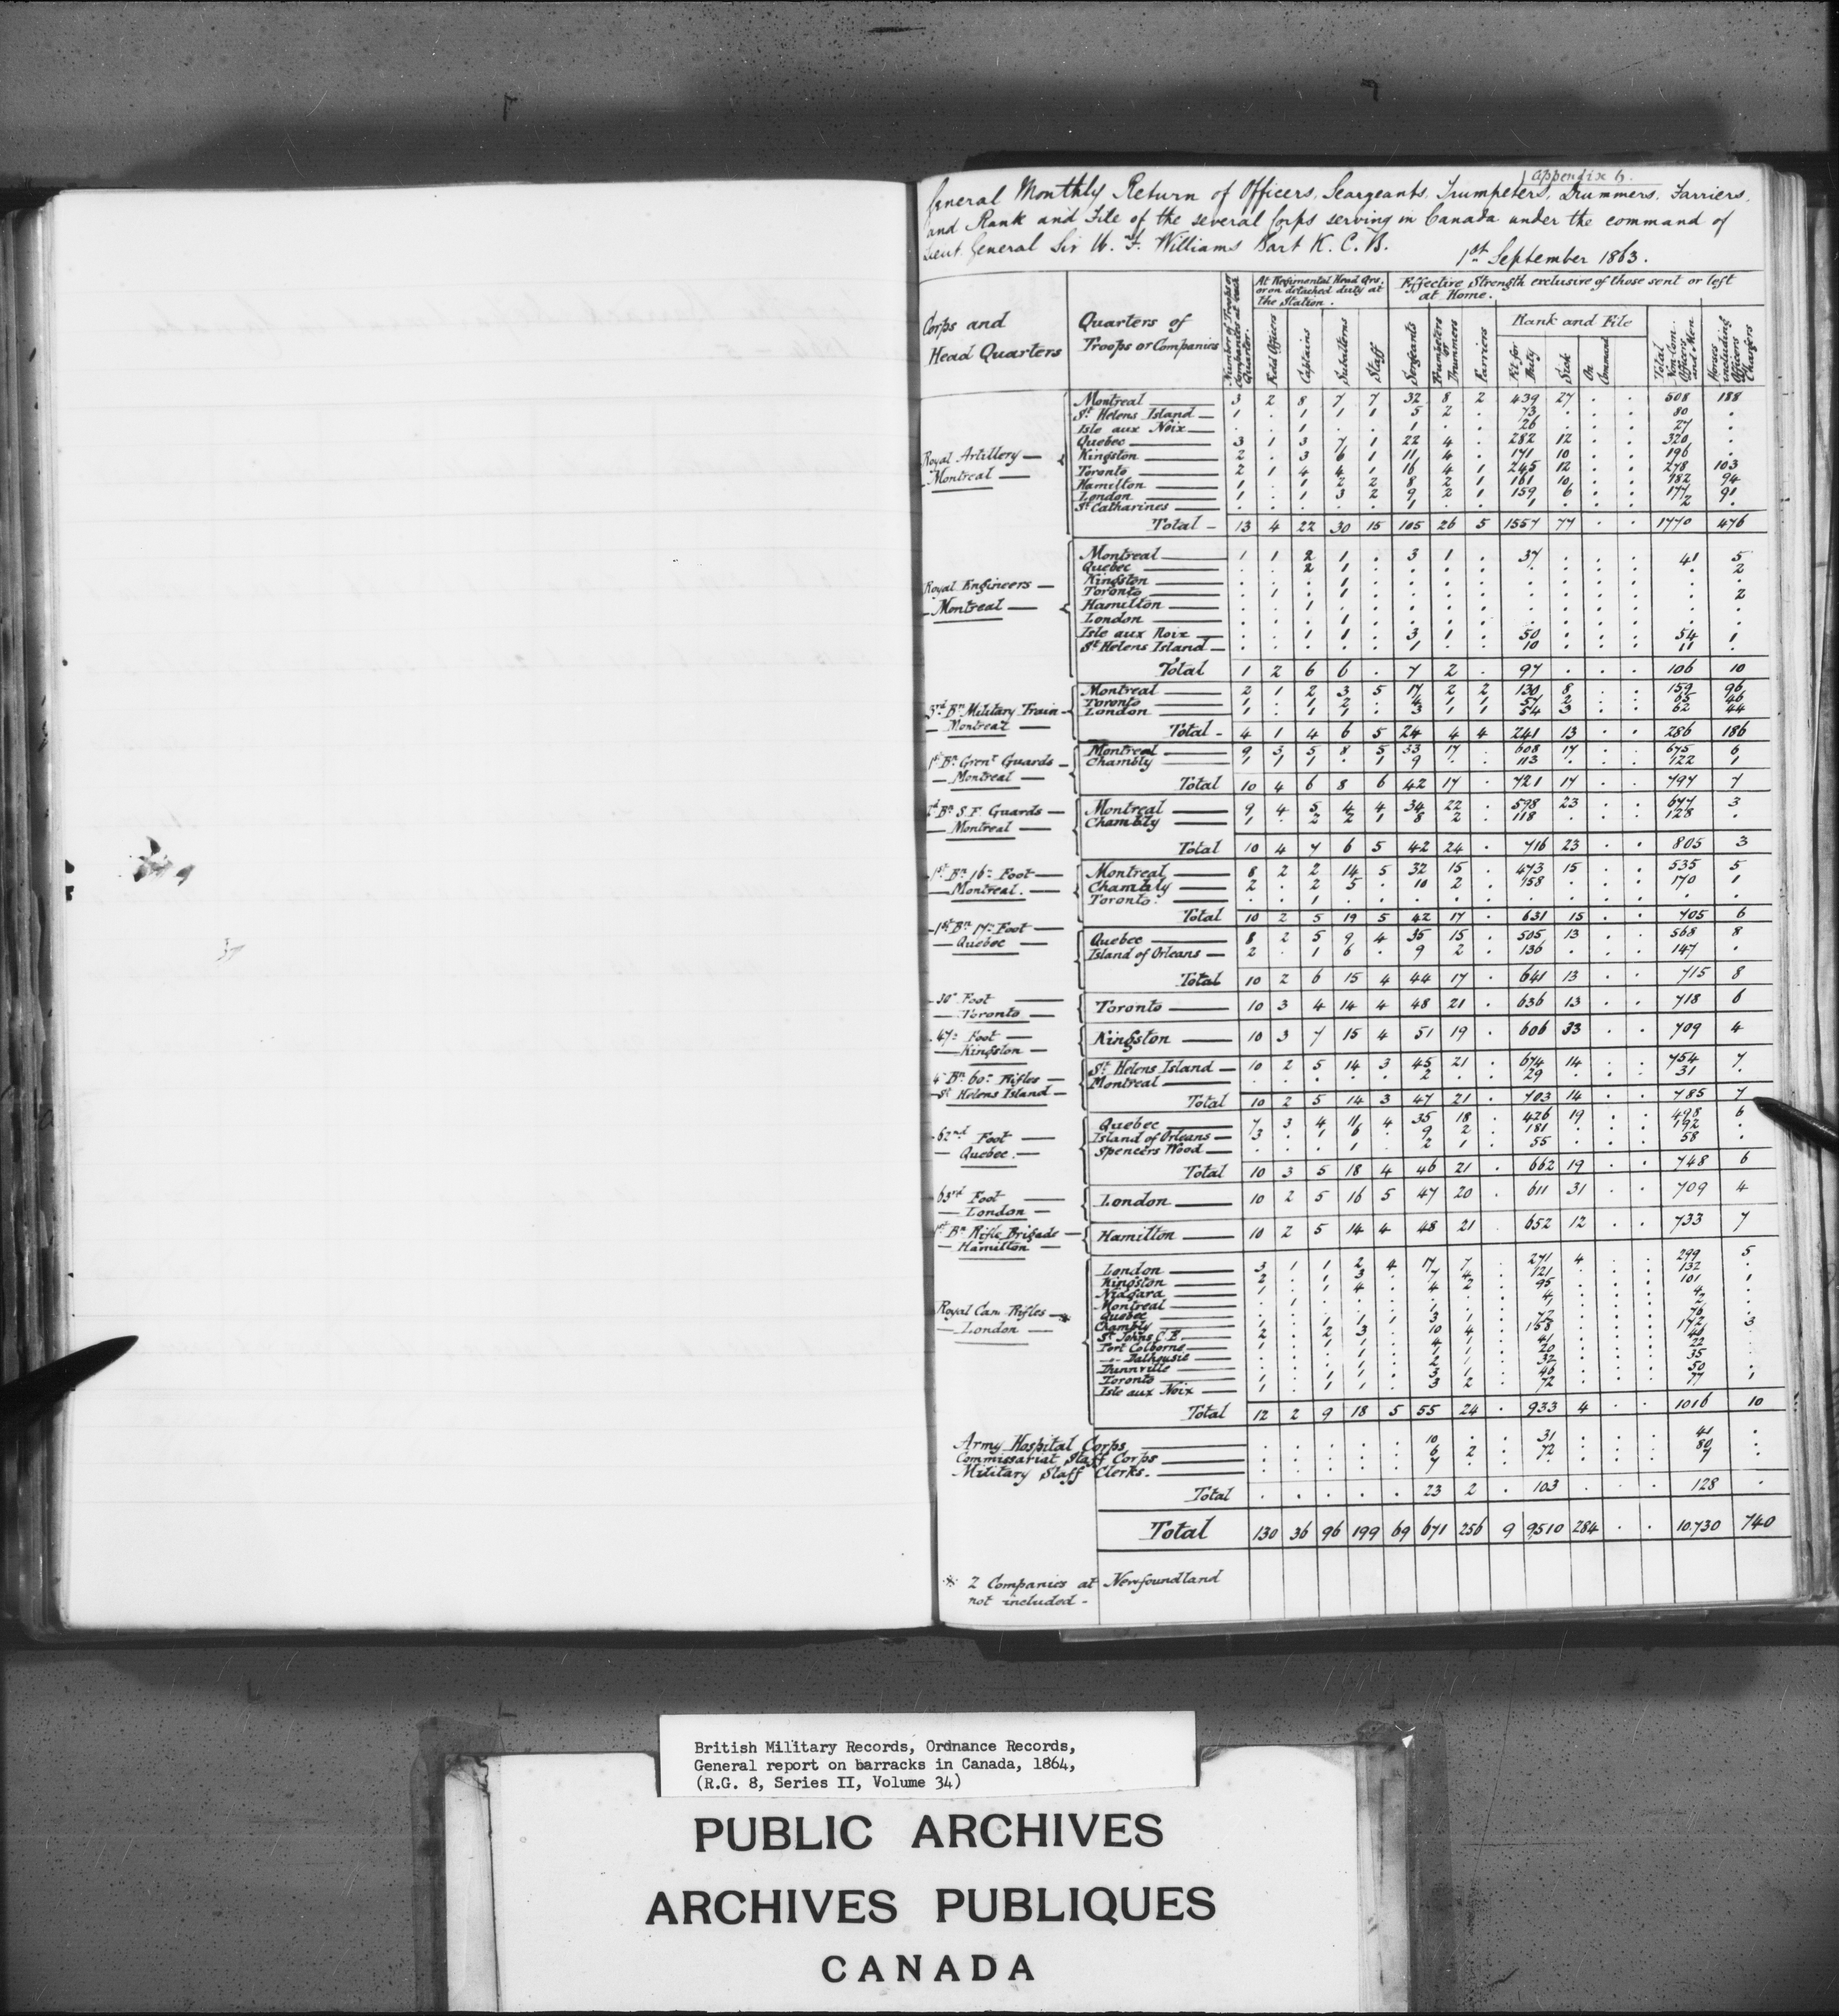 Appendix 6.
General Monthly Return of Officers, Seargeants, Trumpeters, Drummers, Farriers,
and Rank and File of the several Corps serving in Canada under the command of
Lieut. General Sir W. F. Williams Bart K. C. B.
1st September 1863.
Corps and Head Quarters
Quarters of Troops or Companies
Number of Troops or Companies at each Quarter.
At Regimental Head Qrs. or on detached duty at the Station.
Effective Strength exclusive of those sent or left at Home.
Field Officers Captains Subalterns Staff Sergeants Trumpeters or Drummers Farriers
Rank and File
Fit for Duty Sick On Command
Total Non-Com. Officers and Men
Horses including Officers Chargers
Royal Artillery — Montreal —
Montreal 3 2 8 7 7 32 8 2 439 27 . . 508 188
St Helens Island 1 . 1 1 1 5 2 . 73 . . . 80 .
Isle aux Noix . . 1 . . 1 . . 26 . . . 27 .
Quebec 3 1 3 7 1 22 4 . 282 12 . . 320 .
Kingston 2 . 3 6 1 11 4 . 171 10 . . 196 .
Toronto 2 1 4 4 1 16 4 1 245 12 . . 278 103
Hamilton 1 . 1 2 2 8 2 1 161 10 . . 182 94
London 1 . 1 3 2 9 2 1 159 6 . . 177 91
St Catharines . . . . . 1 . . 1 . . . 2 .
Total — 13 4 22 30 15 105 26 5 1557 77 . . 1770 476
Royal Engineers — Montreal —
Montreal 1 1 2 1 . 3 1 . 37 . . . 41 5
Quebec . . 2 1 . . . . . . . . . 2
Kingston . . . 1 . . . . . . . . . .
Toronto . 1 . 1 . . . . . . . . . 2
Hamilton . . 1 . . . . . . . . . . .
London . . . 1 . . . . . . . . . .
Isle aux Noix . . 1 1 . 3 1 . 50 . . . 54 1
St Helens Island . . . . . 1 . . 10 . . . 11 .
Total 1 2 6 6 . 7 2 . 97 . . . 106 10
3rd Bn Military Train — Montreal —
Montreal 2 1 2 3 5 17 2 2 130 8 . . 159 96
Toronto 1 . 1 2 . 4 1 1 57 2 . . 65 46
London 1 . 1 1 . 3 1 1 54 3 . . 62 44
Total — 4 1 4 6 5 24 4 4 241 13 . . 286 186
1st Bn Grent Guards — Montreal —
Montreal 9 3 5 8 5 33 17 . 608 17 . . 675 6
Chambly 1 1 1 . 1 9 . . 113 . . . 122 1
Total 10 4 6 8 6 42 17 . 721 17 . . 797 7
2d Bn S. F. Guards — Montreal —
Montreal 9 4 5 4 4 34 22 . 598 23 . . 677 3
Chambly 1 . 2 2 1 8 2 . 118 . . . 128 .
Total 10 4 7 6 5 42 24 . 716 23 . . 805 3
1st Bn 16th Foot — Montreal. —
Montreal 8 2 2 14 5 32 15 . 473 15 . . 535 5
Chambly 2 . 2 5 . 10 2 . 158 . . . 170 1
Toronto . . 1 . . . . . . . . . . .
Total 10 2 5 19 5 42 17 . 631 15 . . 705 6
1st Bn 17th Foot — Quebec —
Quebec 8 2 5 9 4 35 15 . 505 13 . . 568 8
Island of Orleans 2 . 1 6 . 9 2 . 136 . . . 147 .
Total 10 2 6 15 4 44 17 . 641 13 . . 715 8
30th Foot — Toronto —
Toronto 10 3 4 14 4 48 21 . 636 13 . . 718 6
47th Foot — Kingston —
Kingston 10 3 7 15 4 51 19 . 606 33 . . 709 4
4th Bn 60th Rifles — St Helens Island —
St Helens Island 10 2 5 14 3 45 21 . 674 14 . . 754 7
Montreal . . . . . 2 . . 29 . . . 31 .
Total 10 2 5 14 3 47 21 . 703 14 . . 785 7
62nd Foot — Quebec. —
Quebec 7 3 4 11 4 35 18 . 426 19 . . 498 6
Island of Orleans 3 . 1 6 . 9 2 . 181 . . . 192 .
Spencers Wood . . . 1 . 2 1 . 55 . . . 58 .
Total 10 3 5 18 4 46 21 . 662 19 . . 748 6
63rd Foot — London —
London 10 2 5 16 5 47 20 . 611 31 . . 709 4
1st Bn Rifle Brigade — Hamilton —
Hamilton 10 2 5 14 4 48 21 . 652 12 . . 733 7
Royal Can Rifles — London —
London 3 1 1 2 4 17 7 . 271 4 . . 299 5
Kingston 2 . 1 3 . 7 4 . 121 . . . 132 .
Niagara 1 . 1 4 . 4 2 . 95 . . . 101 1
Montreal
Quebec
Chambly
St Johns C.E.
Port Colborne
—"— Dalhousie
Dunnville
Toronto
Isle aux Noix 1 . 1 1 . 3 2 . 72 . . . 77 1
Total 12 2 9 18 5 55 24 . 933 4 . . 1016 10
Army Hospital Corps . . . . . 10 . . 31 . . . 41 .
Commissariat Staff Corps . . . . . 6 2 . 72 . . . 80 .
Military Staff Clerks. . . . . . 7 . . . . . . 7 .
Total . . . . . 23 2 . 103 . . . 128 .
Total 130 36 96 199 69 671 256 9 9510 284 . . 10.730 740
* 2 Companies at Newfoundland
not included —
British Military Records, Ordnance Records,
General report on barracks in Canada, 1864,
(R.G. 8, Series II, Volume 34)
PUBLIC ARCHIVES
ARCHIVES PUBLIQUES
CANADA